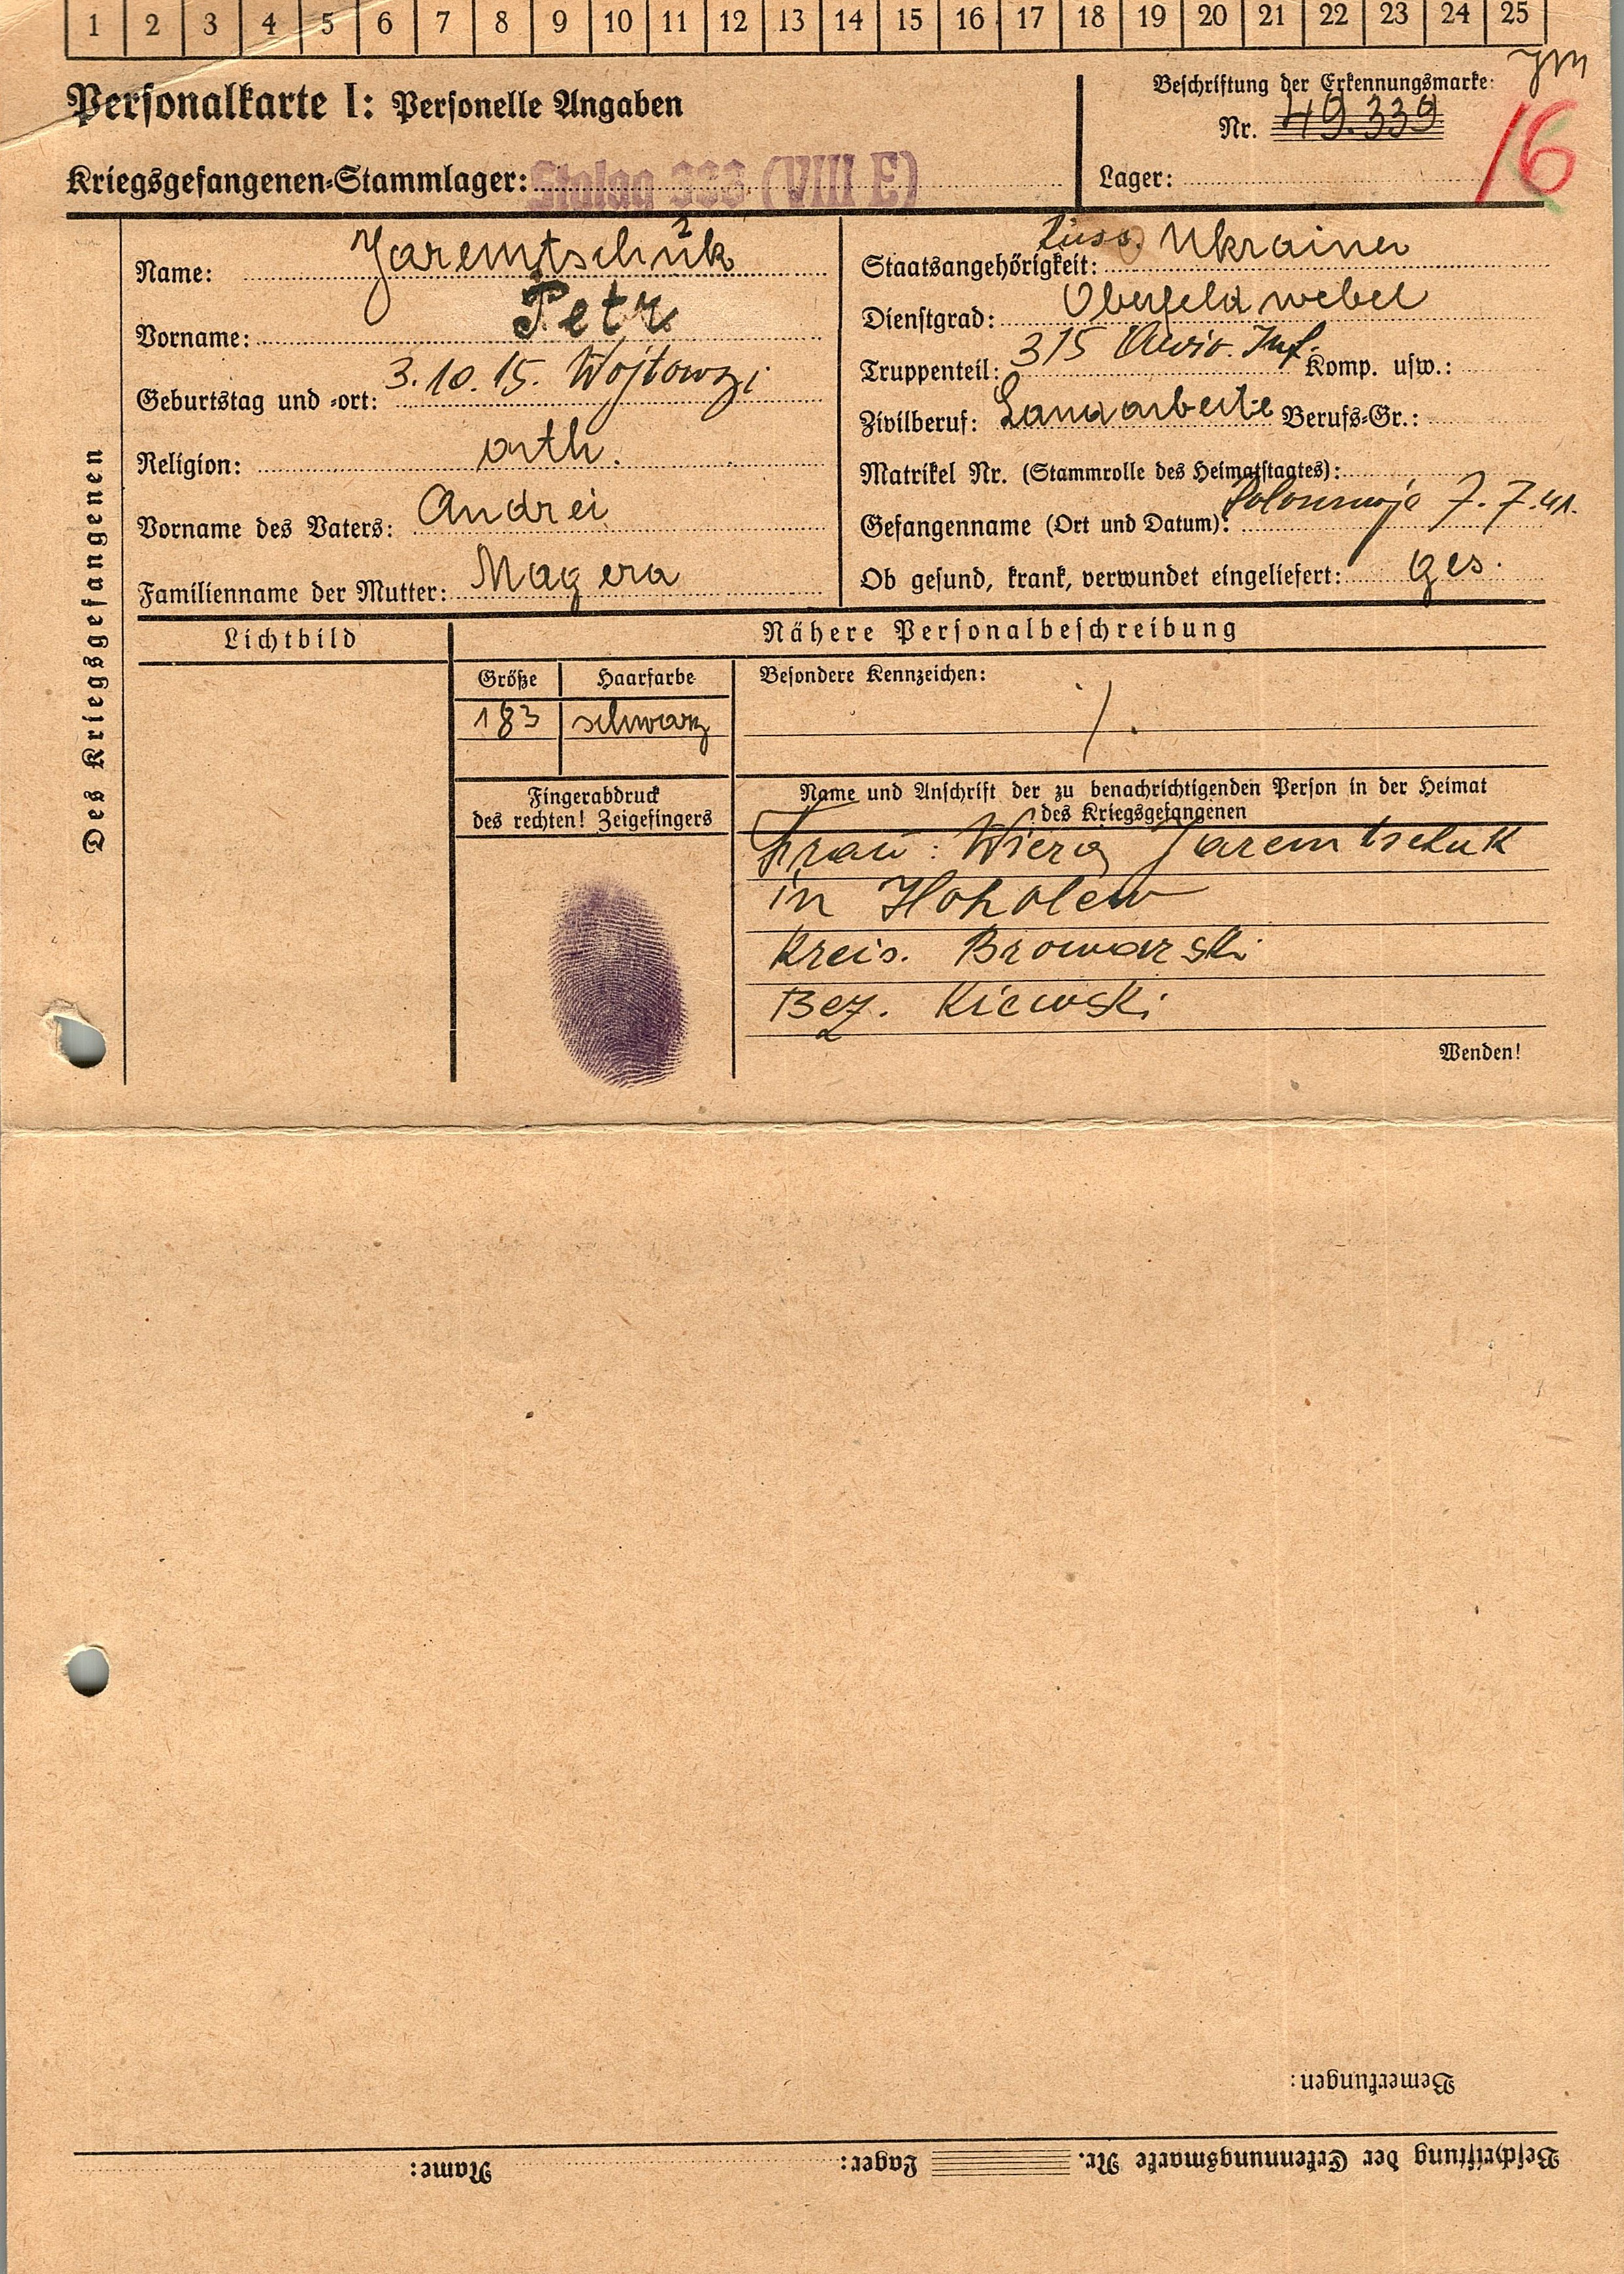 1 2 3 4 5 6 7 8 9 10 11 12 13 14 15 16 17 18 19 20 21 22 23 24 25
Personalkarte I: Personelle Angaben
Beschriftung der Erkennungsmarke:
Nr. 49.339
16
Kriegsgefangenen-Stammlager: Stalag 333 (VIII E)
Lager:
Des Kriegsgefangenen
Name: Jaremtschuk
Vorname: Petr
Geburtstag und -ort: 3.10.15. Wojtowzi
Religion: orth.
Vorname des Vaters: Andrei
Familienname der Mutter: Magera
Staatsangehörigkeit: Russ. Ukrainer
Dienstgrad: Oberfeldwebel
Truppenteil: 315 Inf. Komp. usw.:
Zivilberuf: Landarbeite Berufs-Gr.:
Matrikel Nr. (Stammrolle des Heimatstaates):
Gefangenname (Ort und Datum): 7.7.41.
Ob gesund, krank, verwundet eingeliefert: ges.
Lichtbild
Nähere Personalbeschreibung
Größe Haarfarbe
183 schwarz
Besondere Kennzeichen:
/.
Fingerabdruck
des rechten! Zeigefingers
Name und Anschrift der zu benachrichtigenden Person in der Heimat
des Kriegsgefangenen
Frau: Wiera Jaremtschuk
in Hoholew
Kreis. Browarski
Bez. Kiewski
Wenden!
Bemerkungen:
Beschriftung der Erkennungsmarke Nr. Lager: Name: